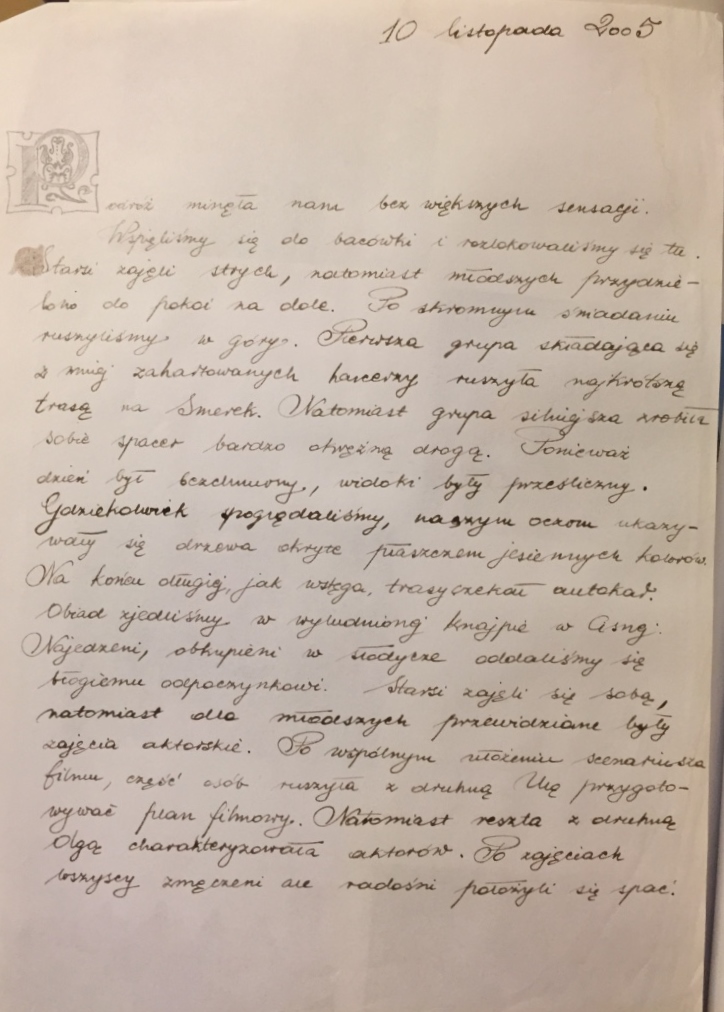 10 listopada 2005
Podróż minęła nam bez większych sensacji.
Wspięliśmy się do bacówki i rozlokowaliśmy się tu.
Starsi zajęli strych, natomiast młodszych przydzie-
lono do pokoi na dole. Po skromnym śniadaniu
ruszyliśmy w góry. Pierwsza grupa składająca się
z mniej zahartowanych harcerzy ruszyła najkrótszą
trasą na Smerek. Natomiast grupa silniejsza zrobiła
sobie spacer bardzo okrężną drogą. Ponieważ
dzień był bezchmurny, widoki były prześliczny.
Gdziekolwiek spoglądaliśmy, naszym oczom ukazy-
wały się drzewa okryte płaszczem jesiennych kolorów.
Na końcu długiej, jak wstęga, trasy czekał autokar.
Obiad zjedliśmy w wyludnionej knajpie w Cisnej.
Najedzeni, obkupieni w słodycze oddaliśmy się
błogiemu odpoczynkowi. Starsi zajęli się sobą,
natomiast dla młodszych przewidziane były
zajęcia aktorskie. Po wspólnym ułożeniu scenariusza
filmu, część osób ruszyła z druhną Ulą przygoto-
wywać plan filmowy. Natomiast reszta z druhną
Olgą charakteryzowała aktorów. Po zajęciach
wszyscy zmęczeni ale radośni położyli się spać.